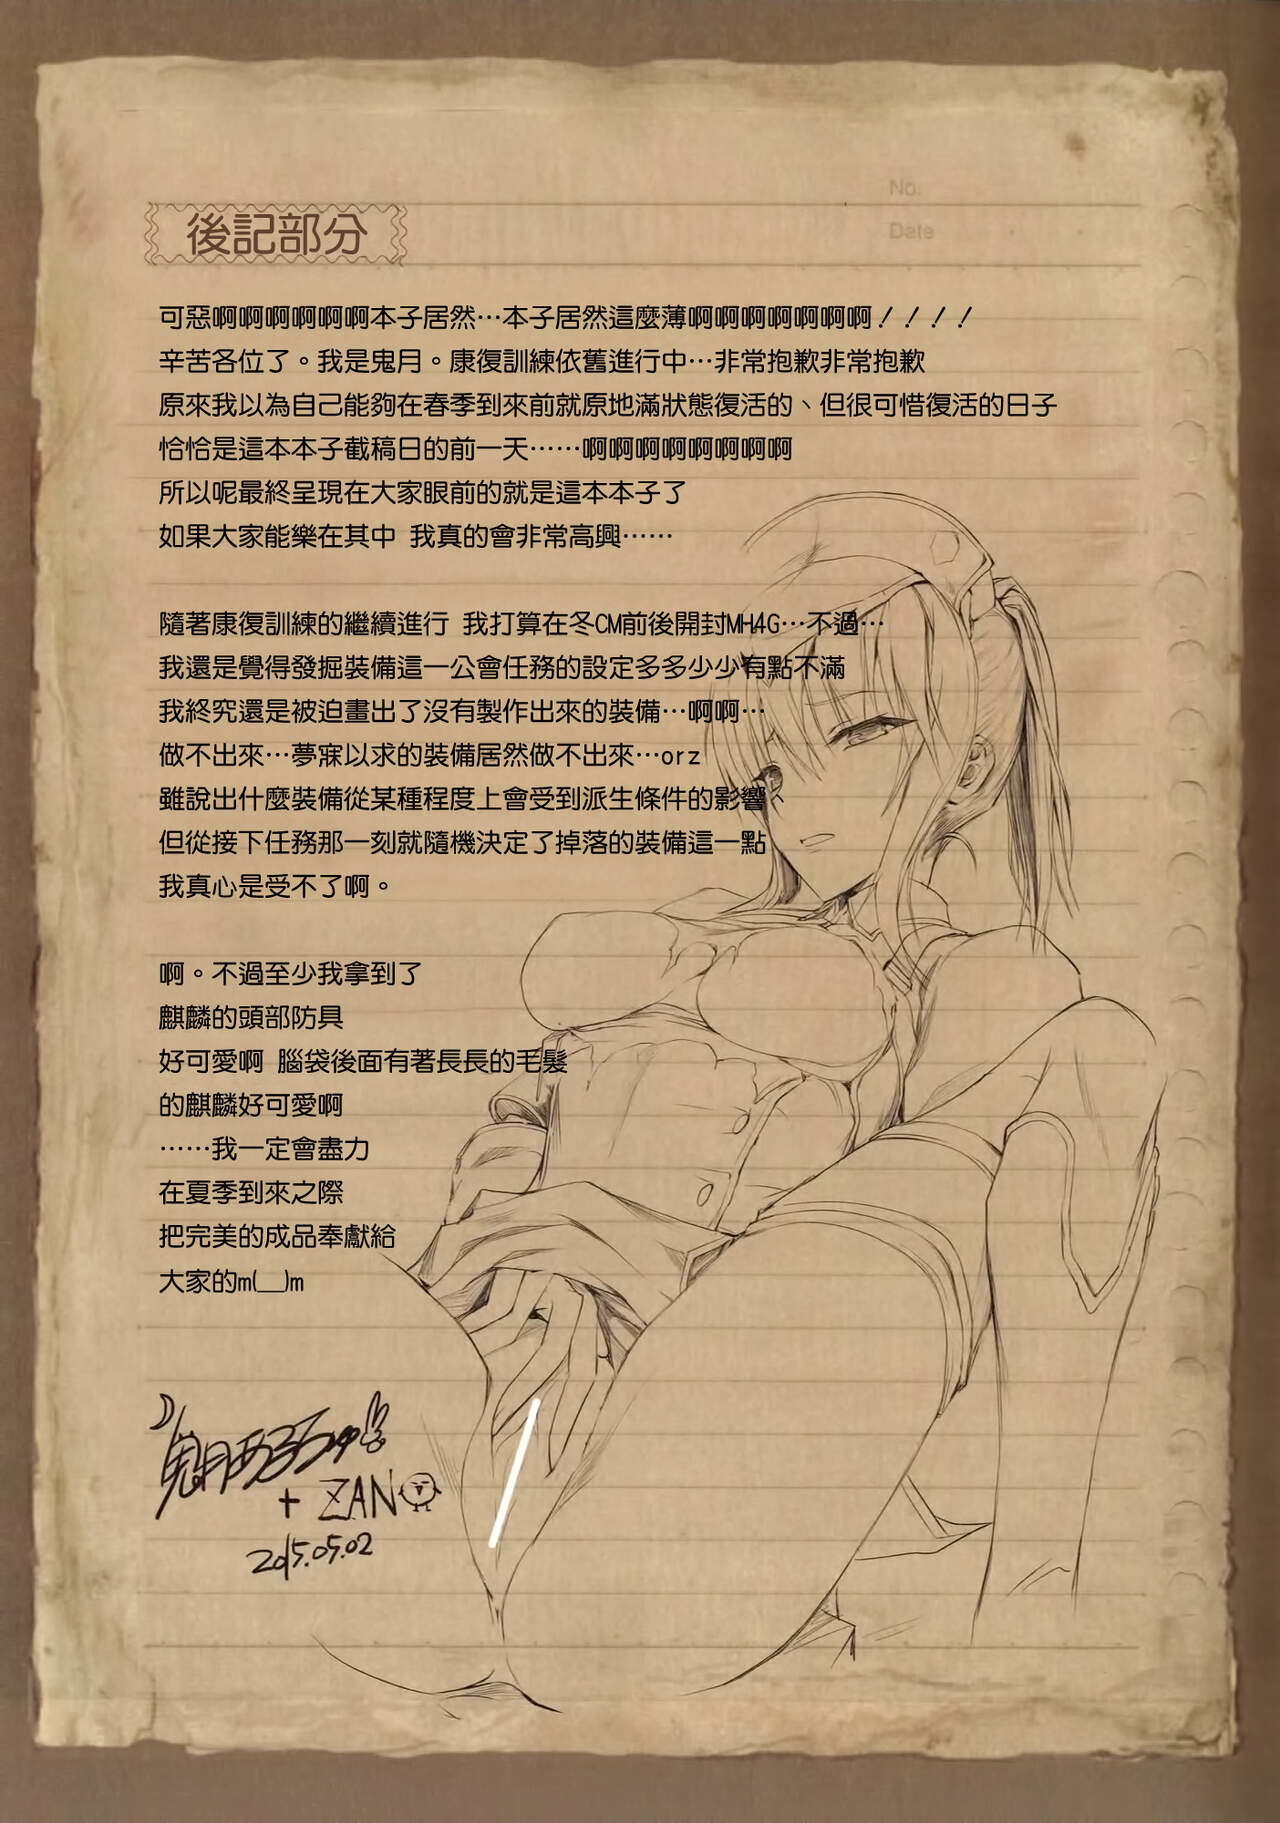 No.
Date
後記部分
可惡啊啊啊啊啊啊本子居然…本子居然這麼薄啊啊啊啊啊啊啊！！！！
辛苦各位了。我是鬼月。康復訓練依舊進行中…非常抱歉非常抱歉
原來我以為自己能夠在春季到來前就原地滿狀態復活的、但很可惜復活的日子
恰恰是這本本子截稿日的前一天……啊啊啊啊啊啊啊啊
所以呢最終呈現在大家眼前的就是這本本子了
如果大家能樂在其中 我真的會非常高興……
隨著康復訓練的繼續進行 我打算在冬CM前後開封MH4G…不過…
我還是覺得發掘裝備這一公會任務的設定多多少少有點不滿
我終究還是被迫畫出了沒有製作出來的裝備…啊啊…
做不出來…夢寐以求的裝備居然做不出來…orz
雖說出什麼裝備從某種程度上會受到派生條件的影響、
但從接下任務那一刻就隨機決定了掉落的裝備這一點
我真心是受不了啊。
啊。不過至少我拿到了
麒麟的頭部防具
好可愛啊 腦袋後面有著長長的毛髮
的麒麟好可愛啊
……我一定會盡力
在夏季到來之際
把完美的成品奉獻給
大家的m(__)m
鬼月
+ ZAN
2015.05.02